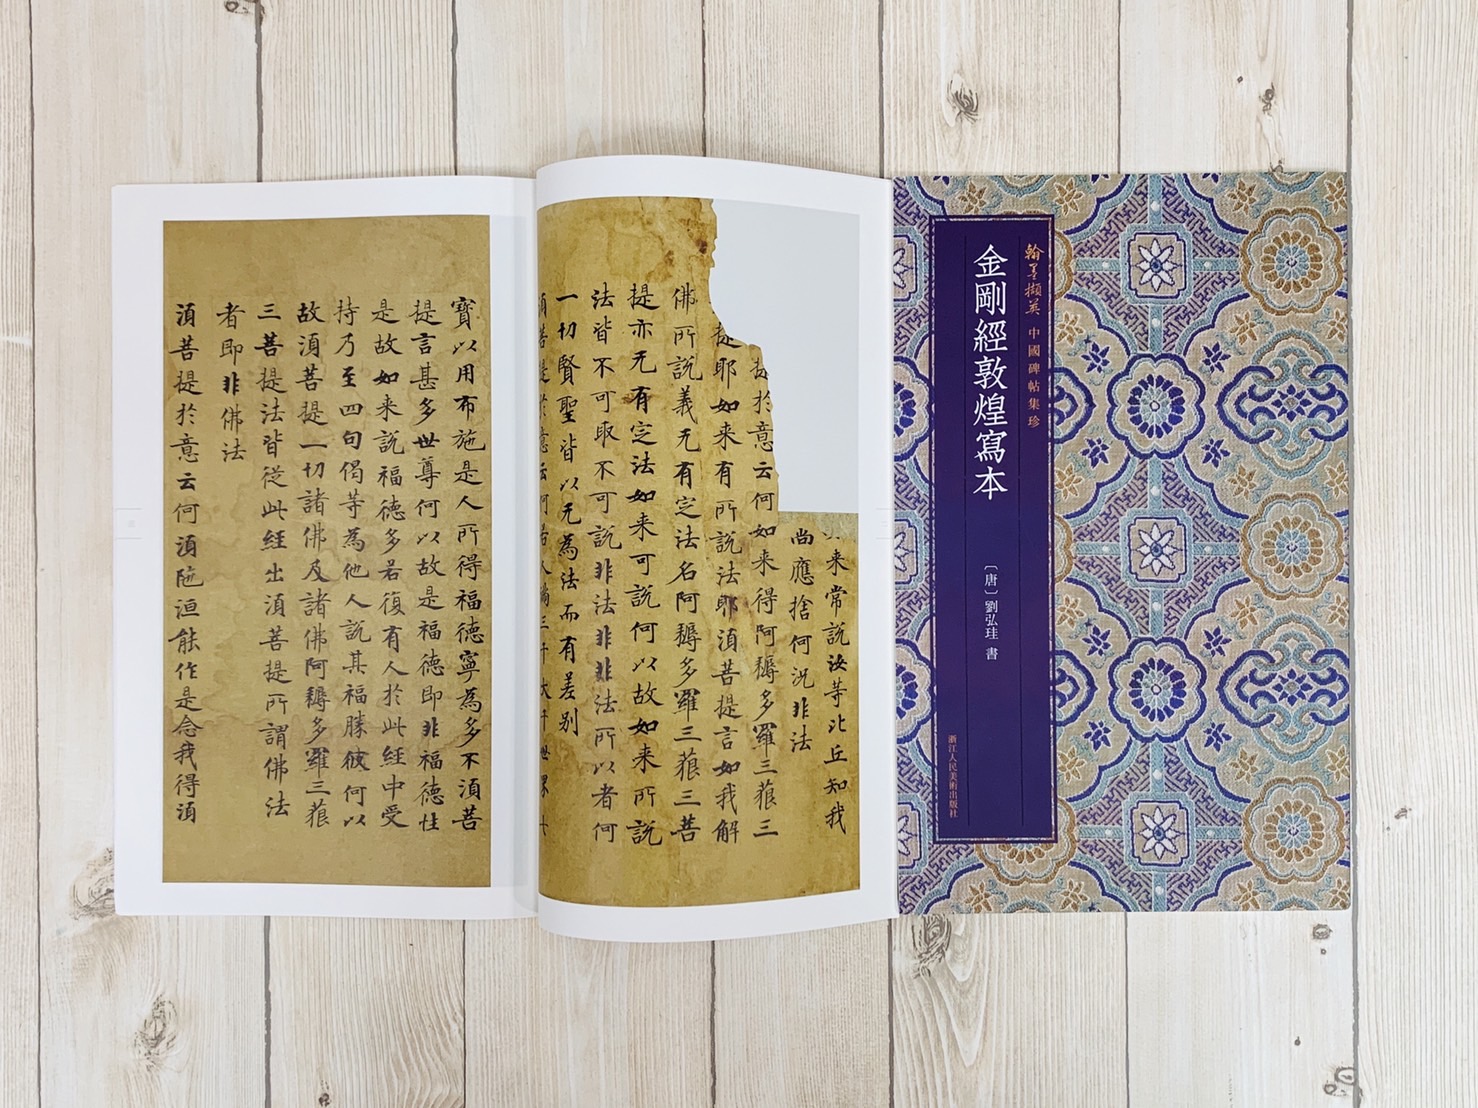 翰墨擷英 中國碑帖集珍
金剛經敦煌寫本
〔唐〕劉弘珪 書
浙江人民美術出版社
来常說汝等比丘知我
尚應捨何況非法
提於意云何如来得阿耨多羅三藐三
提耶如来有所說法耶湏菩提言如我解
佛所說義无有定法名阿耨多羅三藐三菩
提亦无有定法如来可說何以故如来所說
法皆不可取不可說非法非非法所以者何
一切賢聖皆以无為法而有差别
湏菩提於意云何若人滿三千大千世界七
寶以用布施是人所得福德寧為多不湏菩
提言甚多世尊何以故是福德即非福德性
是故如来說福德多若復有人於此經中受
持乃至四句偈等為他人說其福勝彼何以
故湏菩提一切諸佛及諸佛阿耨多羅三藐
三菩提法皆從此經出湏菩提所謂佛法
者即非佛法
湏菩提於意云何湏陁洹能作是念我得湏